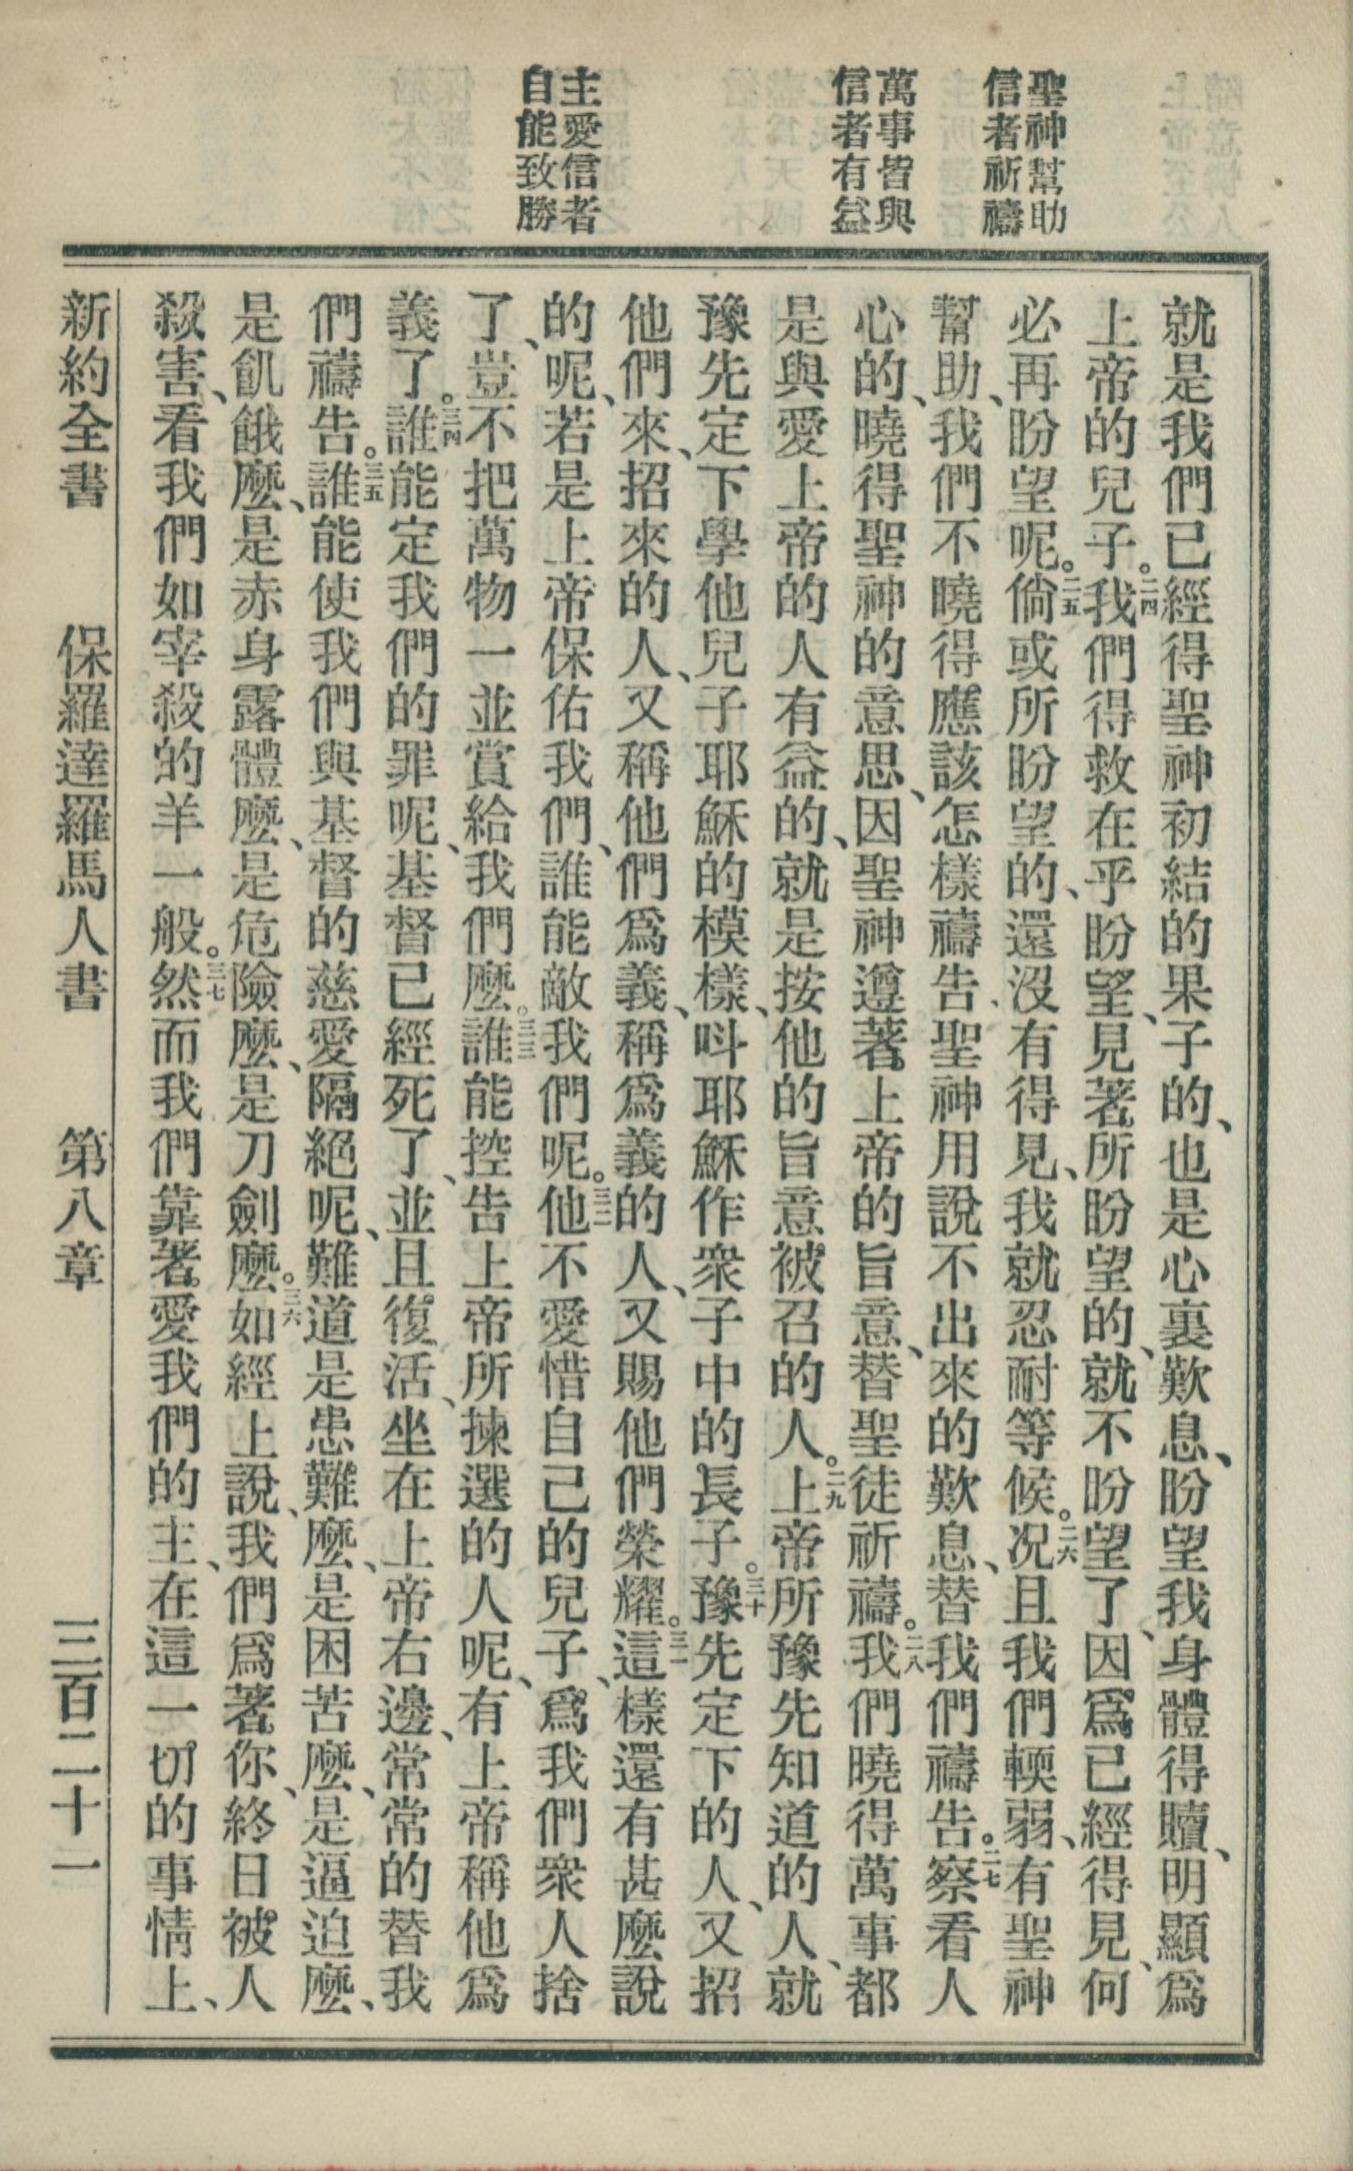 聖神幫助
信者祈禱
萬事皆與
信者有益
主愛信者
自能致勝
就是我們已經得聖神初結的果子的、也是心裏歎息、盼望我身體得贖、明顯爲
上帝的兒子。二四我們得救在乎盼望、見著所盼望的、就不盼望了、因爲已經得見、何
必再盼望呢。二五倘或所盼望的、還沒有得見、我就忍耐等候。二六況且我們輭弱、有聖神
幫助、我們不曉得應該怎樣禱告、聖神用說不出來的歎息、替我們禱告。二七察看人
心的、曉得聖神的意思、因聖神遵著上帝的旨意、替聖徒祈禱。二八我們曉得萬事都
是與愛上帝的人有益的、就是按他的旨意被召的人。二九上帝所豫先知道的人、就
豫先定下學他兒子耶穌的模樣、呌耶穌作衆子中的長子。三十豫先定下的人、又招
他們來、招來的人、又稱他們爲義、稱爲義的人、又賜他們榮耀。三一這樣還有甚麼說
的呢、若是上帝保佑我們、誰能敵我們呢。三二他不愛惜自己的兒子、爲我們衆人捨
了、豈不把萬物一並賞給我們麼。三三誰能控告上帝所揀選的人呢、有上帝稱他爲
義了。三四誰能定我們的罪呢、基督已經死了、並且復活、坐在上帝右邊、常常的替我
們禱告。三五誰能使我們與基督的慈愛隔絕呢、難道是患難麼、是困苦麼、是逼迫麼、
是飢餓麼、是赤身露體麼、是危險麼、是刀劍麼。三六如經上說、我們爲著你、終日被人
殺害、看我們如宰殺的羊一般。三七然而我們靠著愛我們的主、在這一切的事情上、
新約全書　保羅達羅馬人書　第八章　三百二十一